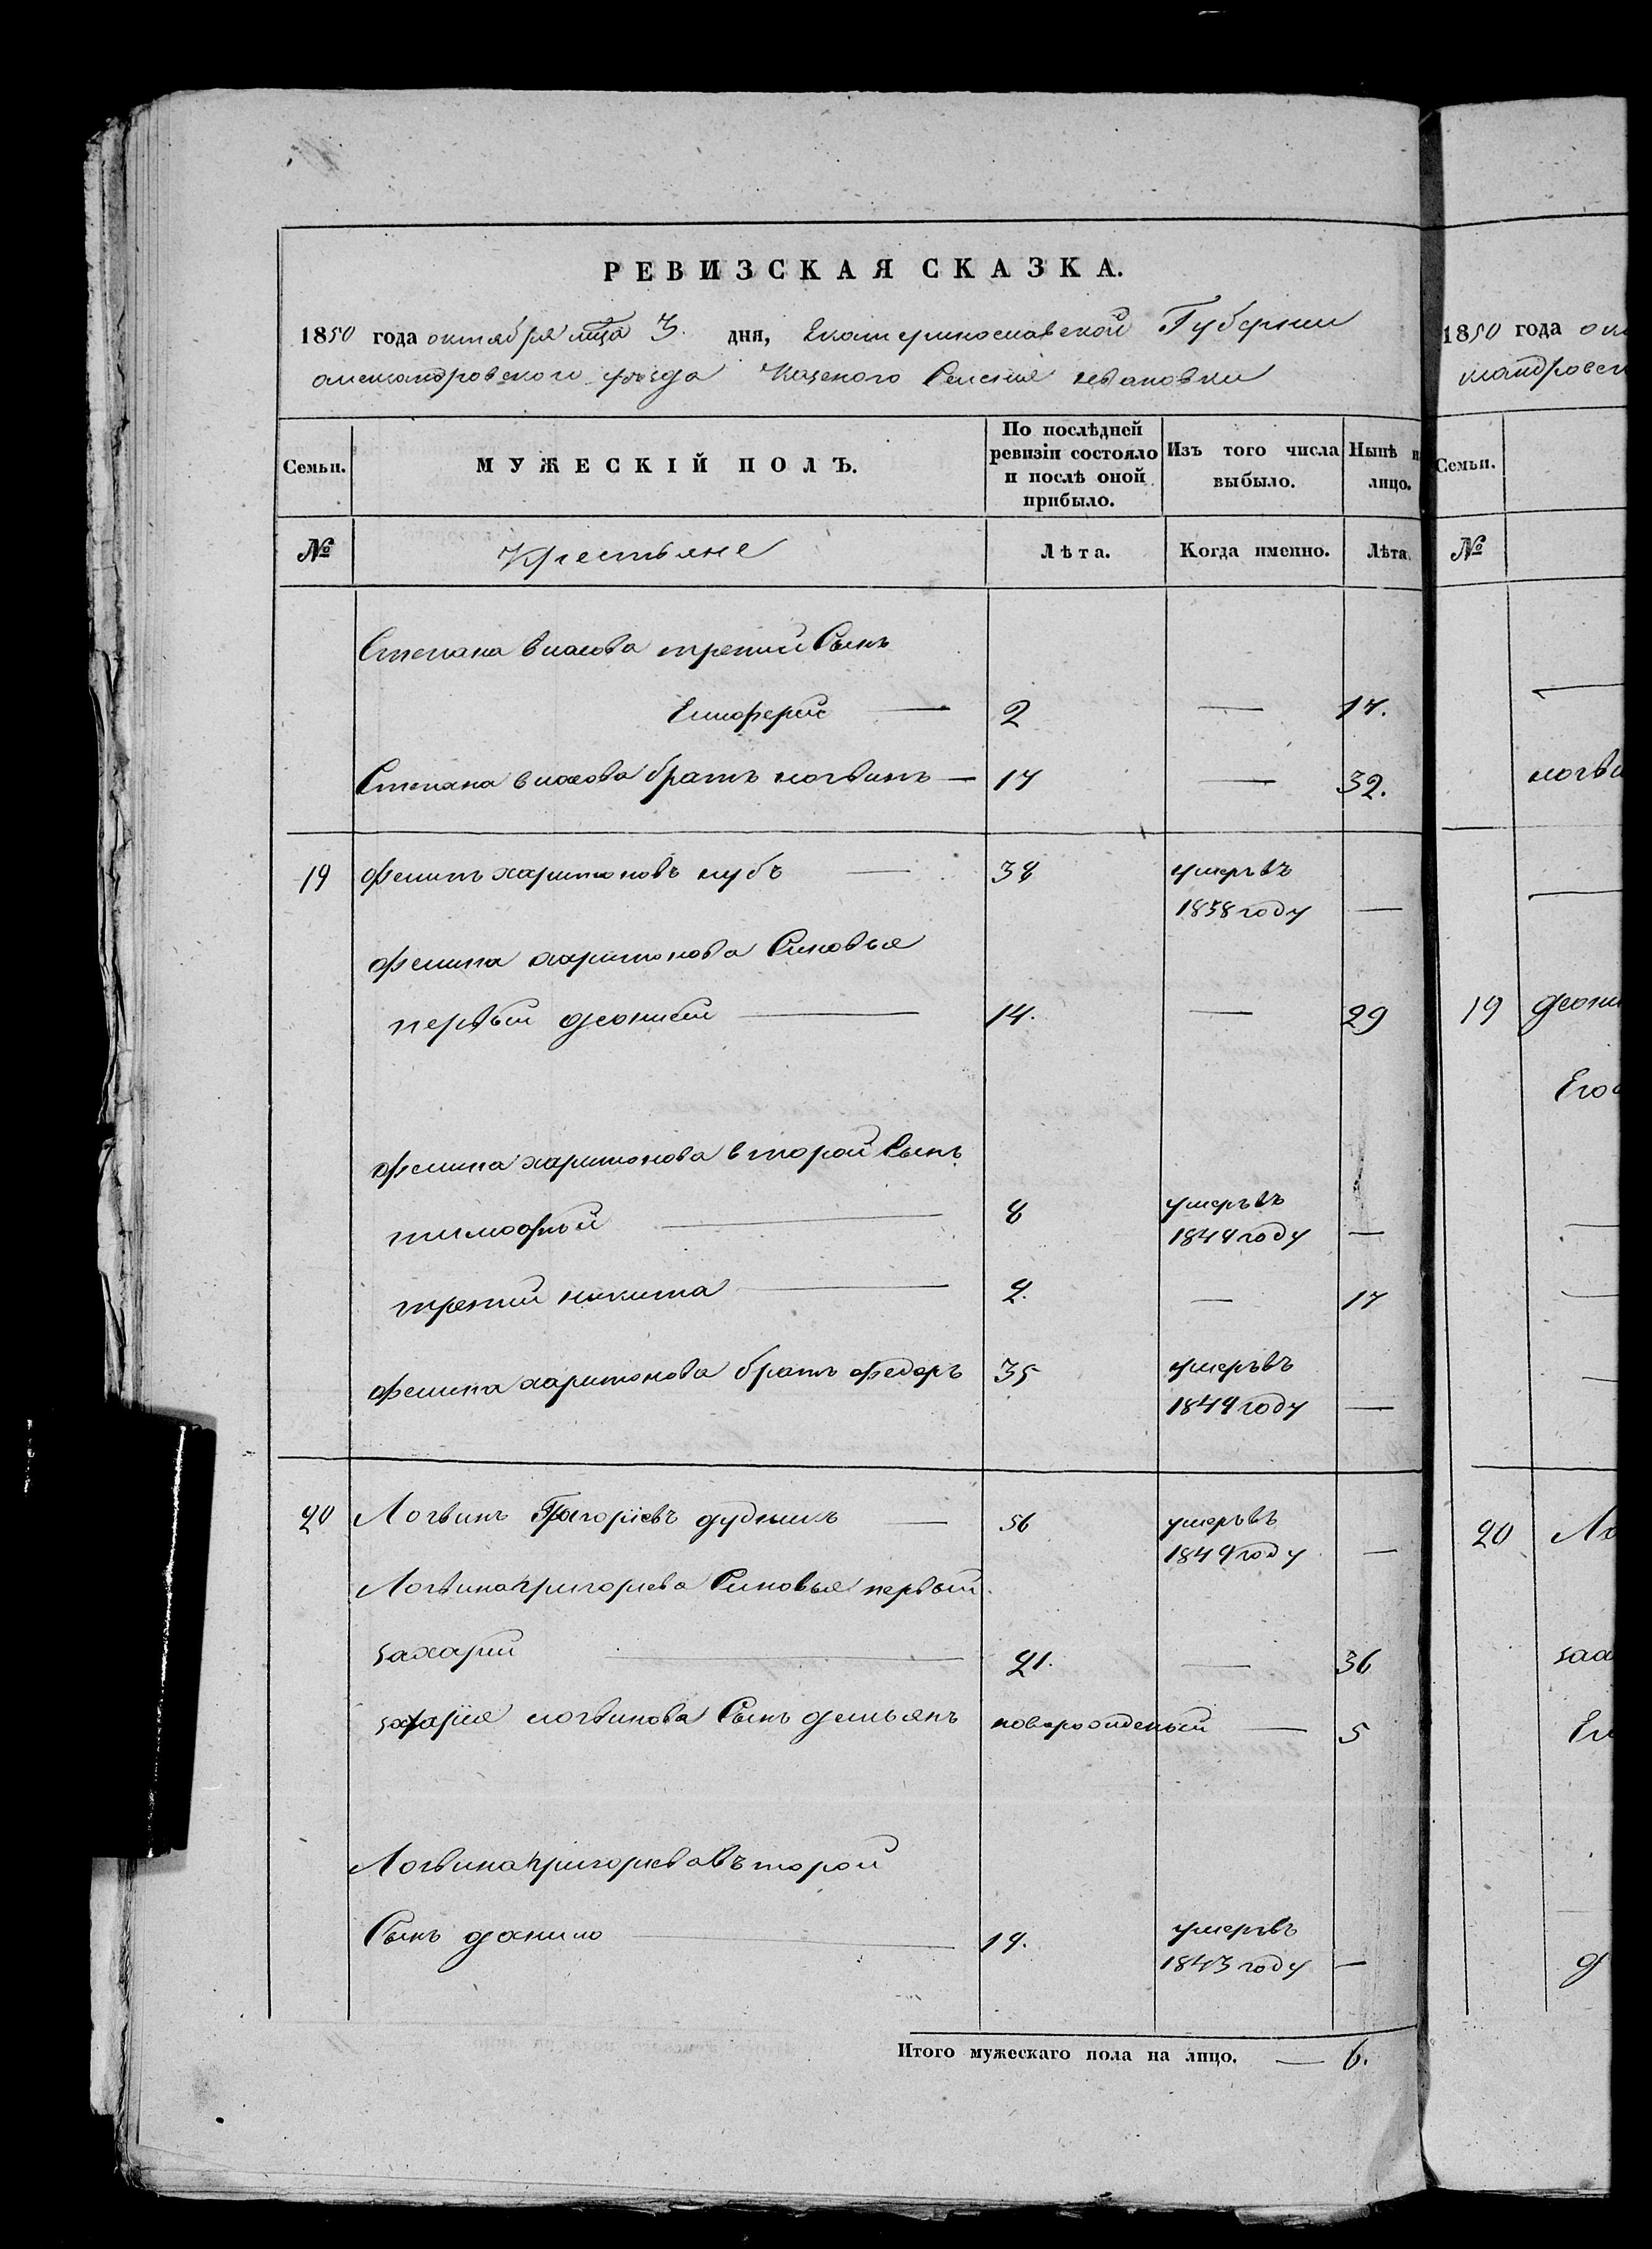 РЕВИЗСКАЯ СКАЗКА.
1850 года октября мца 3. дня, Екатеринославской Губернии
александровского уъзда Казеного Селения
Семьи.
МУЖЕСКІЙ ПОЛЪ.
По послѣдней
ревизіи состояло
и послѣ оной
прибыло.
Изъ того числа
выбыло.
Нынѣ н
лицо.
№ Крестьяне Лѣта. Когда именно. Лѣта.
Степана власова третий Сынъ
Елиоферий — 2 — 17.
Степана власова братъ логвинъ — 17 — 32.
19 филипъ харитоновъ зубъ — 38 умеръ въ
1838 году —
филипа харитонова Синовья
первый деонисий — 14. — 29
филипа харитонова второй Сынъ
тимофѣй — 8 умеръ въ
1849 году —
третий никита — 2. — 17
филипа харитонова братъ федоръ 35 умеръ въ
1849 году —
20 Логвинъ Григорiевъ дудникъ — 56 умеръ въ
1849 году —
Логвина григориева Синовья первый
захарий — 21. — 36
захарiя логвинова Сынъ демьянъ новорожденый — 5
Логвина григориева въторой
Сынъ данило — 19. умеръ въ
1843 году —
Итого мужескаго пола на лицо. — 6.
1850 года ок
ксандровск
Семьи.
№
логви
19 деони
Его
20 Ло
заха
Ег
д